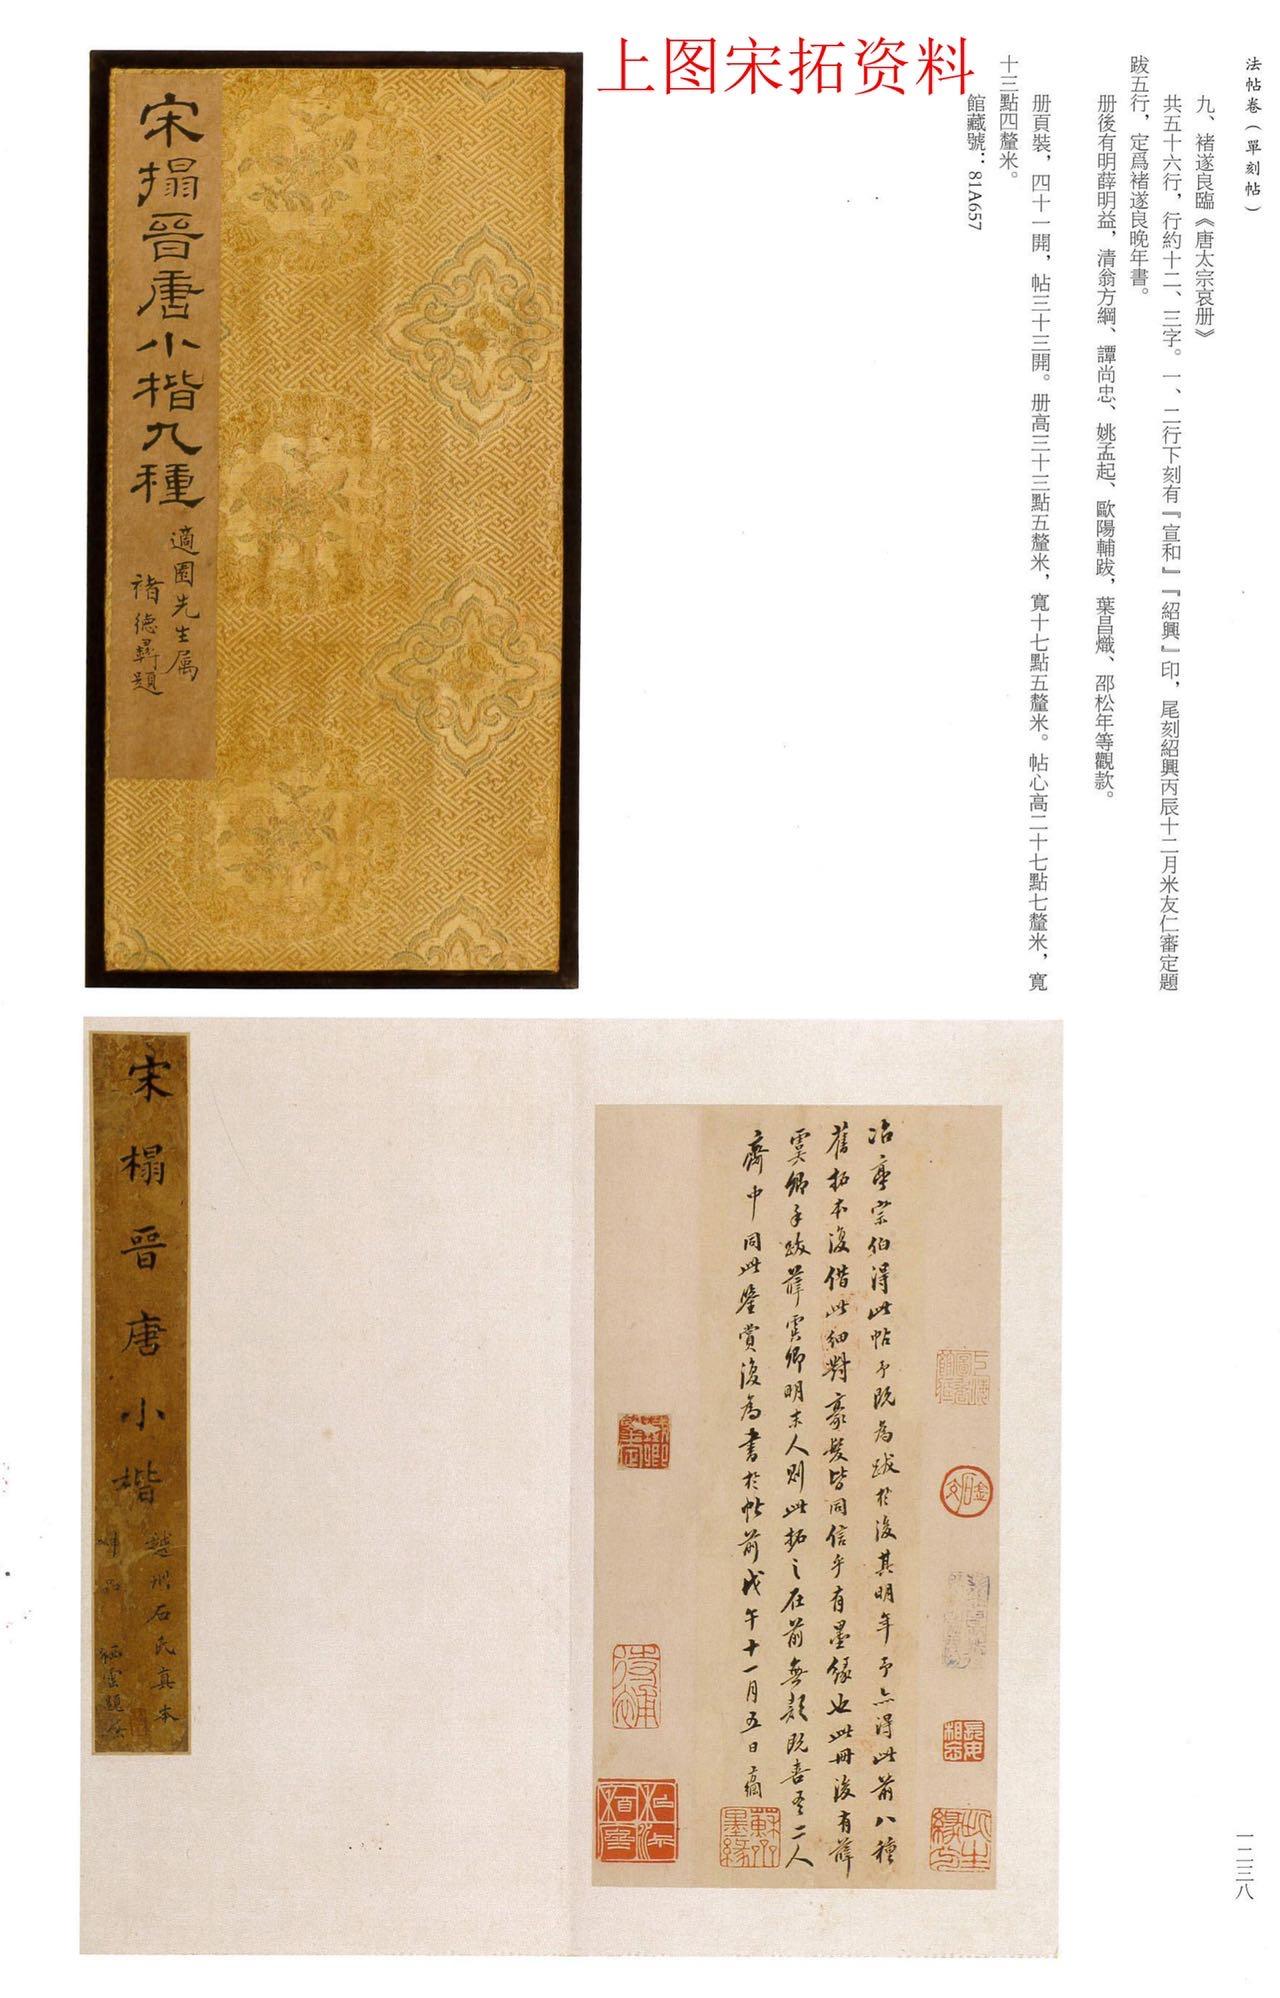 上图宋拓资料
法帖卷（單刻帖）
九、褚遂良臨《唐太宗哀册》
共五十六行，行約十二、三字。一、二行下刻有『宣和』『紹興』印，尾刻紹興丙辰十二月米友仁審定題
跋五行，定爲褚遂良晚年書。
册後有明薛明益，清翁方綱、譚尚忠、姚孟起、歐陽輔跋，葉昌熾、邵松年等觀款。
册頁裝，四十一開，帖三十三開。册高三十三點五釐米，寬十七點五釐米。帖心高二十七點七釐米，寬
十三點四釐米。
館藏號：81A657
宋搨晉唐小楷九種
適園先生属
褚德彝題
冶亭宗伯得此帖予既爲跋於後其明年予亦得此前八種
舊拓本復借此細對豪髮皆同信乎有墨緣也此冊後有薛
虞卿手跋薛虞卿明末人則此拓之在前無疑既喜吾二人
齋中同此鑒賞復爲書於帖前戊午十一月五日方綱
蘇齋墨緣
宋榻晉唐小楷
越州石氏真本
神品
一二三八